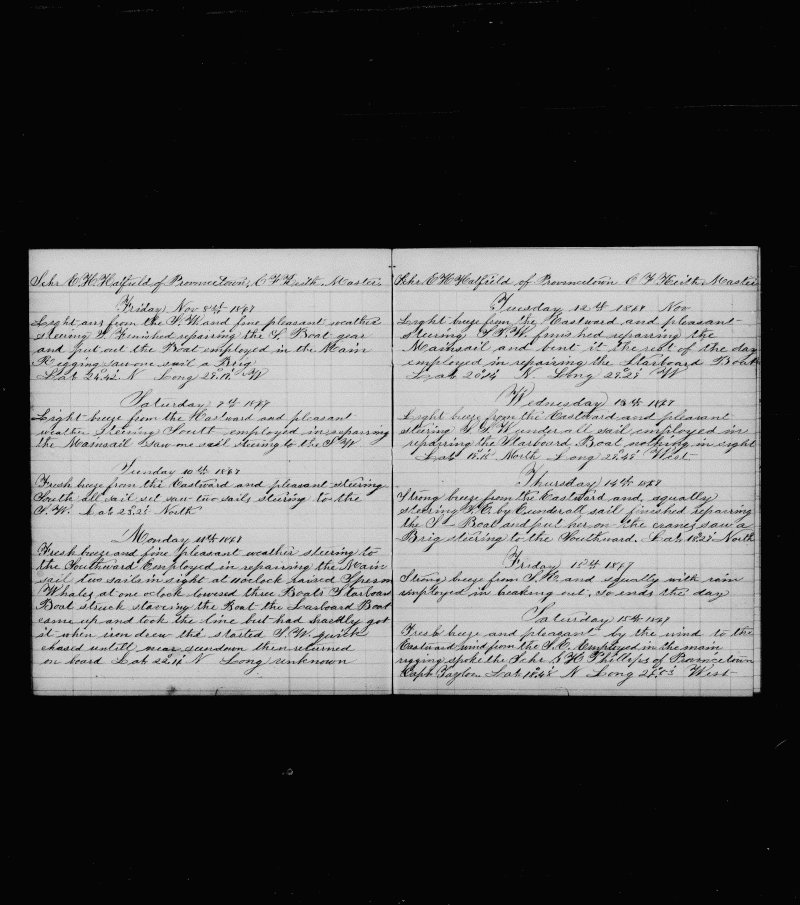 Schr. C H Hatfield of Provincetown, C F Keith Master.
Friday Nov 8th 1867
Light airs from the S.W. and fine pleasant weather
steering S. Finished repairing the S. Boat gear
and put out the Boat employed in the Main
Rigging saw one sail a Brig
Lat 24.42 N Long 29.17 W
Saturday 9th 1867
Light breeze from the Eastward and pleasant
weather steering South employed in reparring
the Mainsail saw one sail steering to the S W
Sunday 10th 1867
Fresh breeze from the Eastward and pleasant steering
South all sail set saw two sails steering to the
S.W. Lat 23.21 North
Monday 11th 1867
Fresh breeze and fine pleasant weather steering to
the Southward Employed in repairing the Main
sail two sails in sight at 11 oclock raised Sperm
Whales at one oclock lowered three Boats Starboard
Boat struck staveing the Boat the Larboard Boat
came up and took the line but had hardly got
it when iron drew the started S W quick
chased untill near sundown then returned
on board Lat 22.14 N Long unknown
Schr. C H Hatfield of Provincetown C F Keith Master
Tuesday 12th 1867 Nov
Light breeze from the Eastward and pleasant
steering S.S.W. finished reparring the
Mainsail and bent it the rest of the day
employed in repairing the Starboard Boat
Lat 20.54 N Long 29.29 W
Wednesday 13th 1867
Light breeze from the Eastward and pleasant
steering S. S. W under all sail employed in
reparring the Starboard Boat nothing in sight
Lat 19.15 North Long 29.45 West
Thursday 14th 1867
Strong breeze from the Eastward and squally
steering S.E. by E under all sail finished repairing
the S Boat and put her on the cranes saw a
Brig steering to the Southward. Lat 18.27 North
Friday 15th 1867
Strong breeze from S.E. and squally with rain
employed in breaking out, So ends the day
Saturday 15th 1867
Fresh breeze and pleasant by the wind to the
Eastward wind from the S.E. Employed in the main
rigging spoke the Schr. B H Phillips of Provincetown
Capt Taylor Lat 18.48 N Long 27.03 West